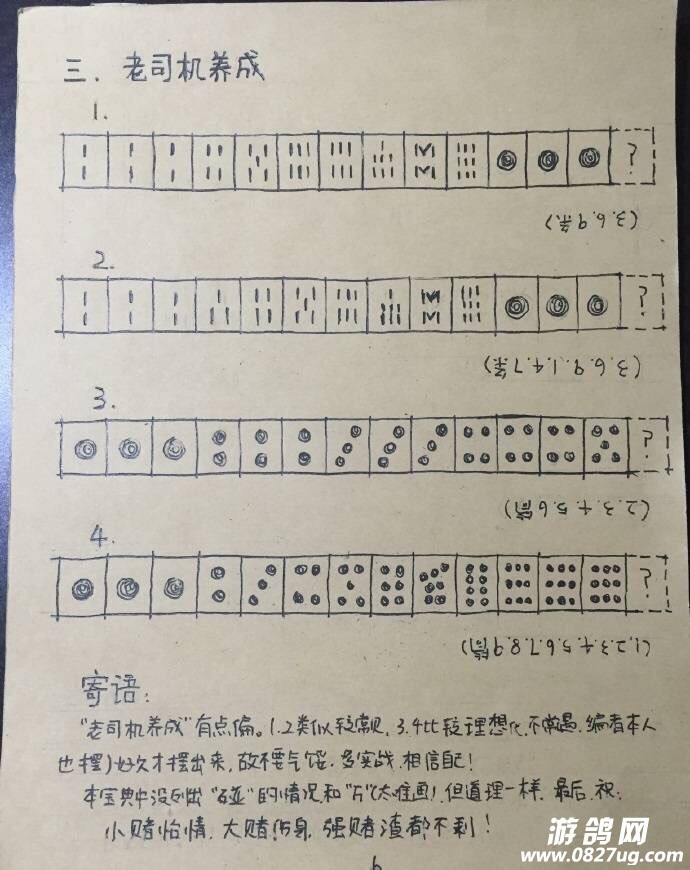 三. 老司机养成
1.
?
(3.6.9条)
2.
?
(3.6.9.1.4.7条)
3.
?
(2.3.4.5.6筒)
4.
?
(1.2.3.4.5.6.7.8.9筒)
寄语:
"老司机养成"有点偏。1.2类似较常规, 3.4比较理想化,不常遇. 编者本人
也摆了好久才摆出来, 故不要气馁. 多实战, 相信自己!
本宝典中没列出"碰"的情况和"万"(太难画), 但道理一样. 最后, 祝:
小赌怡情, 大赌伤身, 强赌渣都不剩!
6
游鸽网
www.0827ug.com